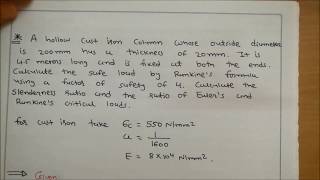 * A hollow cast iron Column whose outside diameter
is 200mm has a thickness of 20mm. It is
4.5 meters long and is fixed at both the ends.
Calculate the safe load by Rankine's formula
using a factor of safety of 4. Calculate the
Slenderness ratio and the ratio of Euler's and
Rankine's critical loads.
for cast iron take σc = 550 N/mm²
a = 1/1600
E = 8×10⁴ N/mm².
⇒ Given: